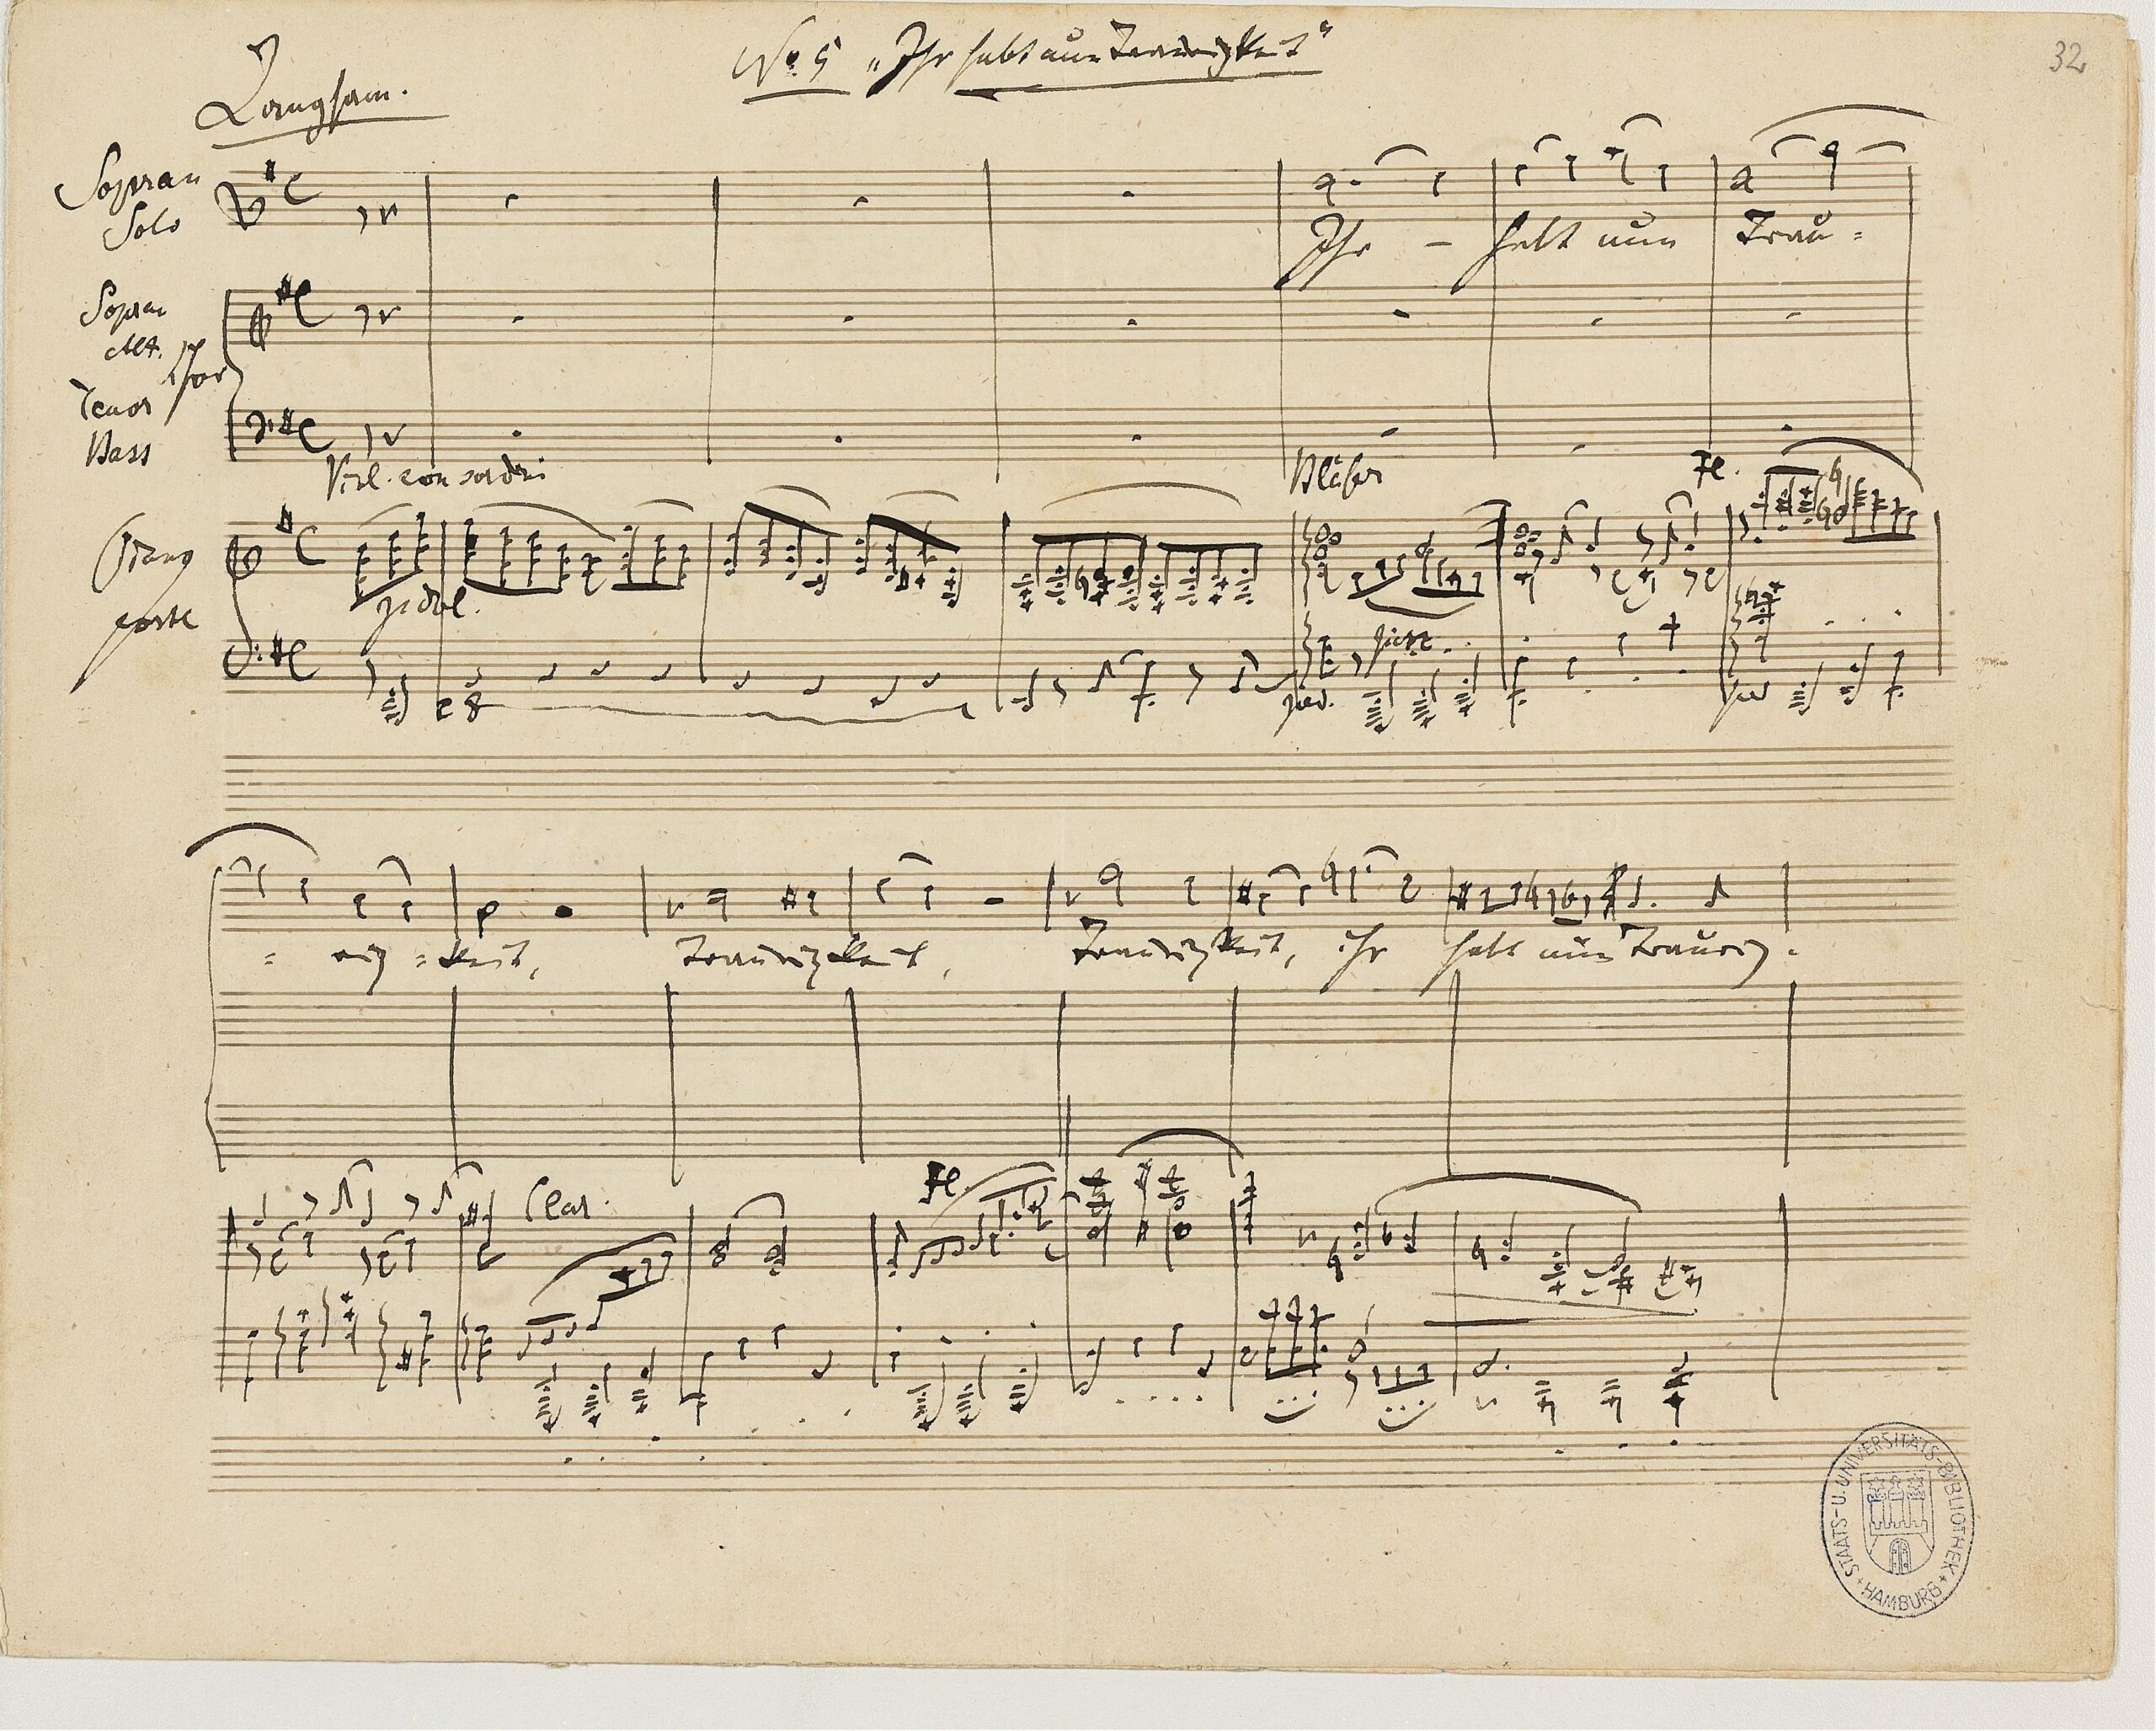 No. 5 „Ihr habt nun Traurigkeit“
32
Langsam.
Sopran
Solo
Ihr – habt nun Trau=
Sopran
Alt.
Chor
Tenor
Bass
Viol. con sordini
Bläser
Fl.
Piano
forte
p dol.
pizz.
Ped.
Ped
= rig = keit, Traurigkeit, Traurigkeit, ihr habt nun Traurig=
Clar.
Fl.
STAATS- U. UNIVERSITÄTS-BIBLIOTHEK
* HAMBURG *